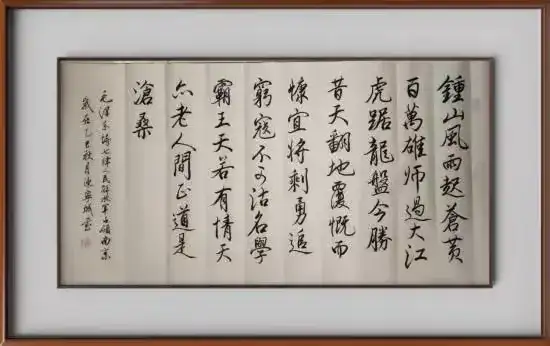 鍾山風雨起蒼黄
百萬雄師過大江
虎踞龍盤今勝
昔天翻地覆慨而
慷宜將剩勇追
窮寇不可沽名學
霸王天若有情天
亦老人間正道是
滄桑
毛澤東詩七律人民解放軍占領南京
歲在乙丑秋月陳寧城書